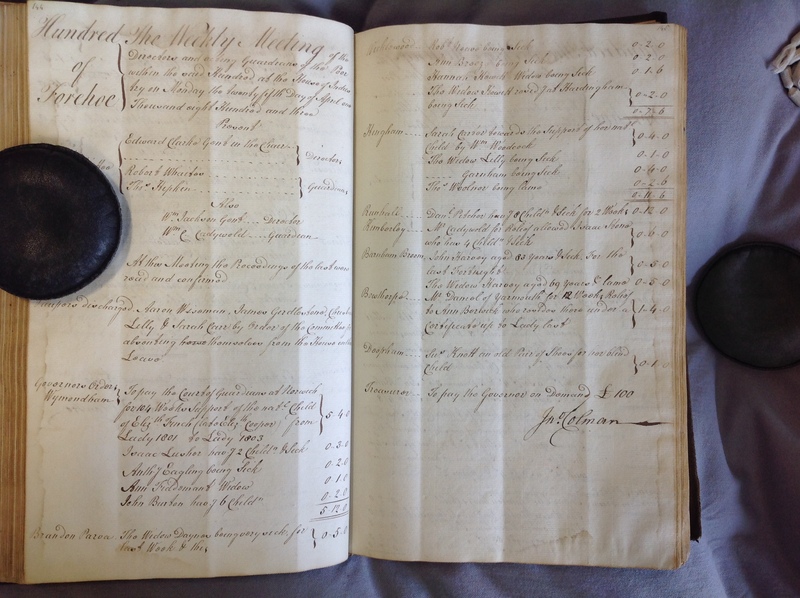 144
Hundred of Forehoe
The Weekly Meeting of the
Directors and acting Guardians of the Poor
within the said Hundred, at the House of Indus
try on Monday the twenty fifth Day of April one
Thousand eight Hundred and three
Present
Edward Clarke Gent in the Chair
Director
Robert Wharton
Thos. Stephin
Guardians
Also
Wm. Jackson Gent Director
Wm. C Cudywold Guardian
At this Meeting the Proceedings of the last were
read and confirmed
Paupers discharged Aaron Wiseman, James Girdlestone,
Lilly, & Sarah Carr by Order of the Committee for
absenting themselves from the House without
Leave
Governors Orders
Wymondham To pay the Court of Guardians at Norwich
for 104 Weeks Support of the natl. Child
of Elizth. Finch from
Lady 1801 to Lady 1803 5-4-0
Isaac Lusher has 7 2 Childn. & Sick 0-3-0
Anthy Eagling being Sick 0-2-0
Ann Tradement Widow 0-1-0
John Burton has 7 6 Childn. 0-2-0
5-12-0
Brandon Parva The Widow Daynes being very sick for
last Week & this 0-5-0
Robt. being Sick 0-2-0
Ann being Sick 0-2-0
Hannah Howlett Widow being Sick 0-1-6
The Widow resided at Hardingham
being Sick 0-2-0
0-7-6
Hingham Sarah Carter towards the Support of her natl.
Child by Wm. Woodcock 0-4-0
The Widow Lilly being Sick 0-1-0
Garnham being Sick 0-4-0
Thos. Woolnor being lame 0-2-6
0-11-6
Runhall Danl. Pitcher has 7 8 Childn. & Sick for 2 Weeks 0-12-0
Kimberley Mr. Cudywold for Relief allowed Isaac Stone
who has 4 Childn. & Sick 0-6-0
Barnham Broom John Harvey aged 83 Years & Sick. For the
last Fortnight 0-5-0
The Widow Harvey aged 69 Years & lame 0-5-0
Bawthorpe Mr. Daniel of Yarmouth for 12 Weeks Relief
to Ann who resides there under a
Certificate up to Lady last 1-4-0
Deopham Jas. Knott an old Pair of Shoes for her blind
Child 0-1-0
Treasurer To pay the Governor on Demand £100
Jno. Colman